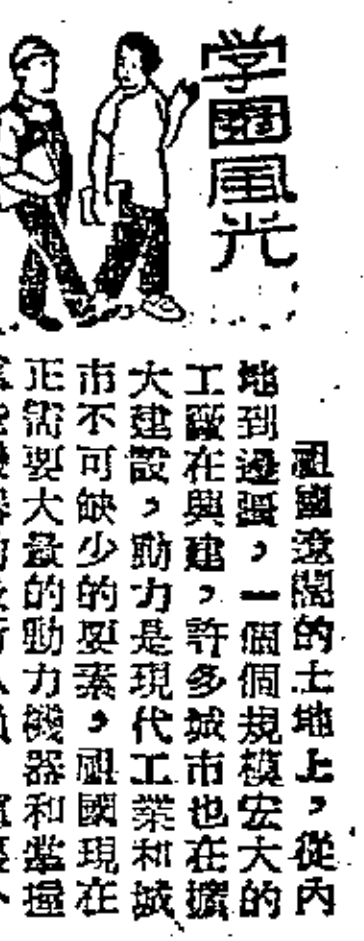 学園風光
祖國遼闊的土地上，從內
地到邊疆，一個個規模宏大的
工廠在興建，許多城市也在擴
大建設，動力是現代工業和城
市不可缺少的要素，祖國現在
正需要大量的動力機器和掌握